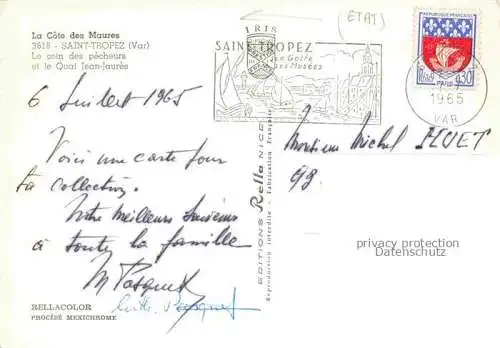 IRIS
(ETAT)
La Côte des Maures
3818 - SAINT-TROPEZ (Var)
Le coin des pêcheurs
et le Quai Jean-Jaurès
SAINT TROPEZ
son Golfe
ses Musées
REPUBLIQUE FRANÇAISE
0,30
PARIS
1965
VAR
6 Juillet 1965
Voici une carte pour
ta collection.
Notre meilleurs Souvenirs
à toute la famille
M Pasquet
Pasquet
EDITIONS Rella NICE
Reproduction interdite - Fabrication Française
Monsieur Michel HUET
98
privacy protection
Datenschutz
RELLACOLOR
PROCÉDÉ MEXICHROME